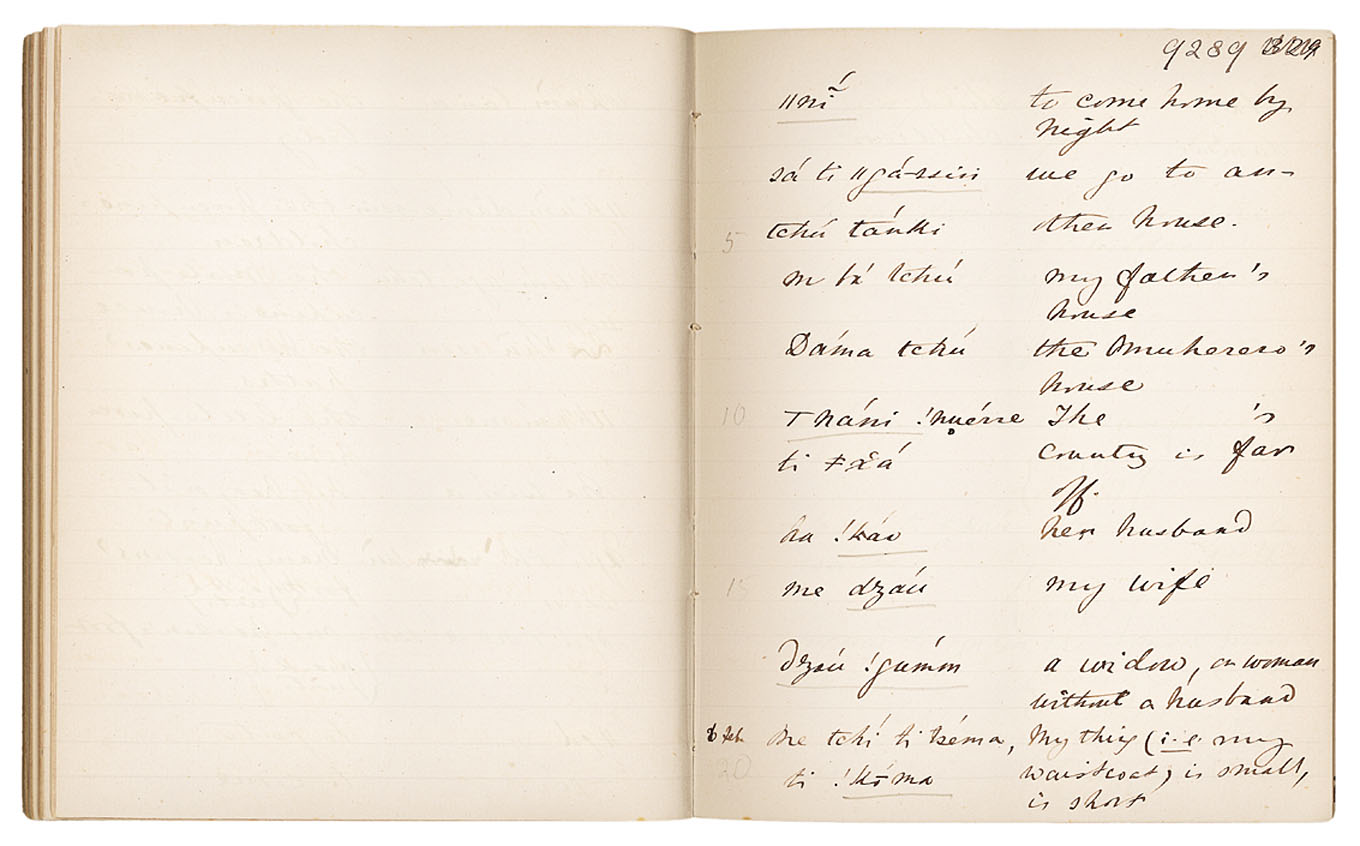 9289
ǁní̃ to come home by
night
sá ti ǁgá-ssin we go to an-
5 tchú tánki other house.
m bá tchú my father's
house
Dáma tchú the Omuherero's
house
10 T háni !nuérre The 's
ti ǂx̌á country is far
off.
ha !káo her husband
15 me dzáu my wife
Dzáu !gúmm a widow, or woman
without a husband
6 Feb. Me tchí ti kéma, My thing (i.e. my
waistcoat) is small,
20 ti !kóma is short